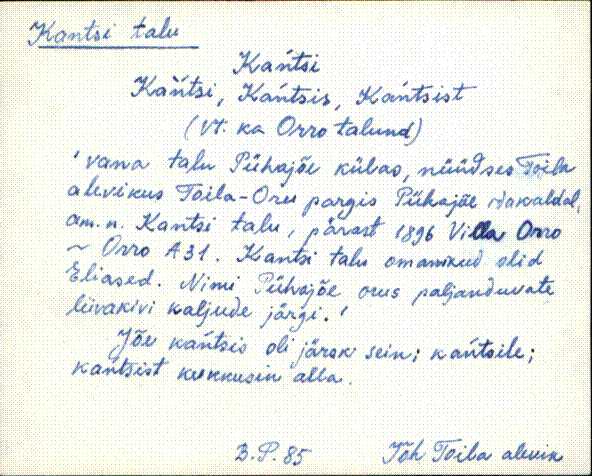 Kantsi talu
Kańtsi
Kàńtsi, Kańtsis, Kańtsist
(vt. ka Orro talund)
'vana talu Pühajõe külas, nüüdses Toila
alevikus Toila-Oru pargis Pühajõe idakaldal,
am.n. Kantsi talu, pärast 1896 Villa Orro
~ Orro A31. Kantsi talu omanikud olid
Eliased. Nimi Pühajõe orus paljanduvate
liivakivi kaljude järgi.'
Jõe kańtsis oli järsk sein; kańtsile;
kańtsist kukkusin alla.
B.P. 85 Jõh Toila alevik